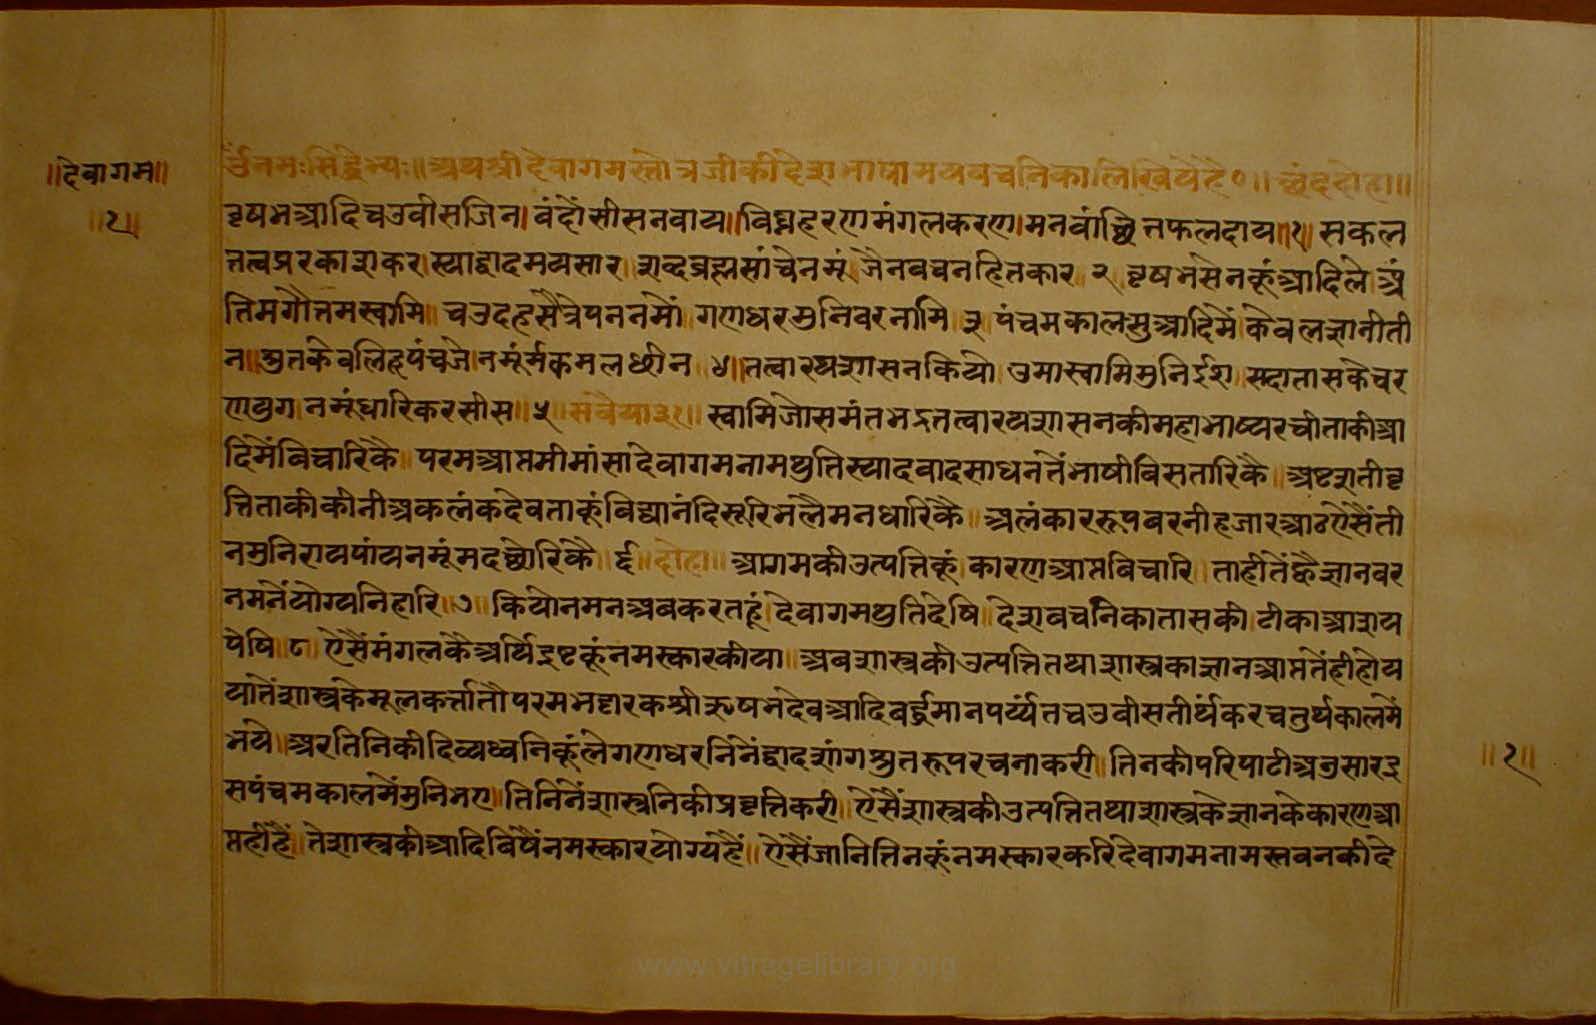 ॥देवागम॥
॥१॥
ॐनमःसिद्धेभ्यः॥अथश्रीदेवागमस्तोत्रजीकीदेशभाषामयवचनिकालिखियेहै०॥ छंददोहा॥
वृषभआदिचउवीसजिन।बंदौंसीसनवाय॥विघ्नहरणमंगलकरण।मनवांछितफलदाय॥१॥ सकल
तत्वप्ररकाशकर।स्याद्वादमयसार॥शब्दब्रह्मसांचेनमूं।जैनबचनहितकार॥२॥वृषभसेनकूंआदिले॥अं
तिमगौत्तमस्वामि॥चउदहसैत्रेपननमों॥गणधरमुनिवरनामि॥३॥पंचमकालसुआदिमें।केवलज्ञानीती
न॥श्रुतकेवलिहूपंचजे।नमूंर्मकमलधीन॥४॥तत्वारथशासनकियो॥उमास्वामिमुनिईश॥सदातासकेचर
णयुग।नमूंधारिकरसीस॥५॥सवैया३१॥स्वामिजोसमंतभद्रतत्वारथशासनकीमहाभाष्यरचीताकीआ
दिमेंविचारिकै॥परमआप्तमीमांसादेवागमनामथुतिस्यादवादसाधनतेंभाषीविसतारिकै॥अष्टशतीवृ
त्तिताकीकीनीअकलंकदेवताकूंविद्यानंदिसूरिभलैमनधारिकै॥अलंकाररूपवरनीहजारआठऐसैंती
नमुनिरायपांयनमूंमदछोरिकै॥६॥दोहा॥आगमकीउत्पत्तिकूं।कारणआप्तविचारि॥ताहीतेंह्वैज्ञानवर
नमनेंयोग्यनिहारि॥७॥कियोनमनअबकरतहूं।देवागमथुतिदेषि॥देशबचनिकातासकी।टीकाआशय
पेषि॥८॥ऐसैंमंगलकैअर्थिइष्टकूंनमस्कारकीया॥अबशास्त्रकीउत्पत्तितथाशास्त्रकाज्ञानआप्ततेंहीहोय
यातेंशास्त्रकेमूलकर्त्तातौपरमभट्टारकश्रीऋषभदेवआदिबर्द्धमानपर्य्यंतचउवीसतीर्थंकरचतुर्थकालमें
भये॥अरतिनिकीदिव्यध्वनिकूंलेगणधरनिंनेंद्वादशांगश्रुतरूपरचनाकरी॥तिनकीपरिपाटीअनुसारइ
सपंचमकालमैंमुनिभए॥तिनिनेंशास्त्रनिकीप्रवृत्तिकरी॥ऐसैंशास्त्रकीउत्पत्तितथाशास्त्रकेज्ञानकेकारणआ
प्तहीहैं॥तेशास्त्रकीआदिविषैंनमस्कारयोग्यहैं॥ऐसैंजानितिनकूंनमस्कारकरिदेवागमनामस्तवनकीदे
॥१॥
www.vitragelibrary.org